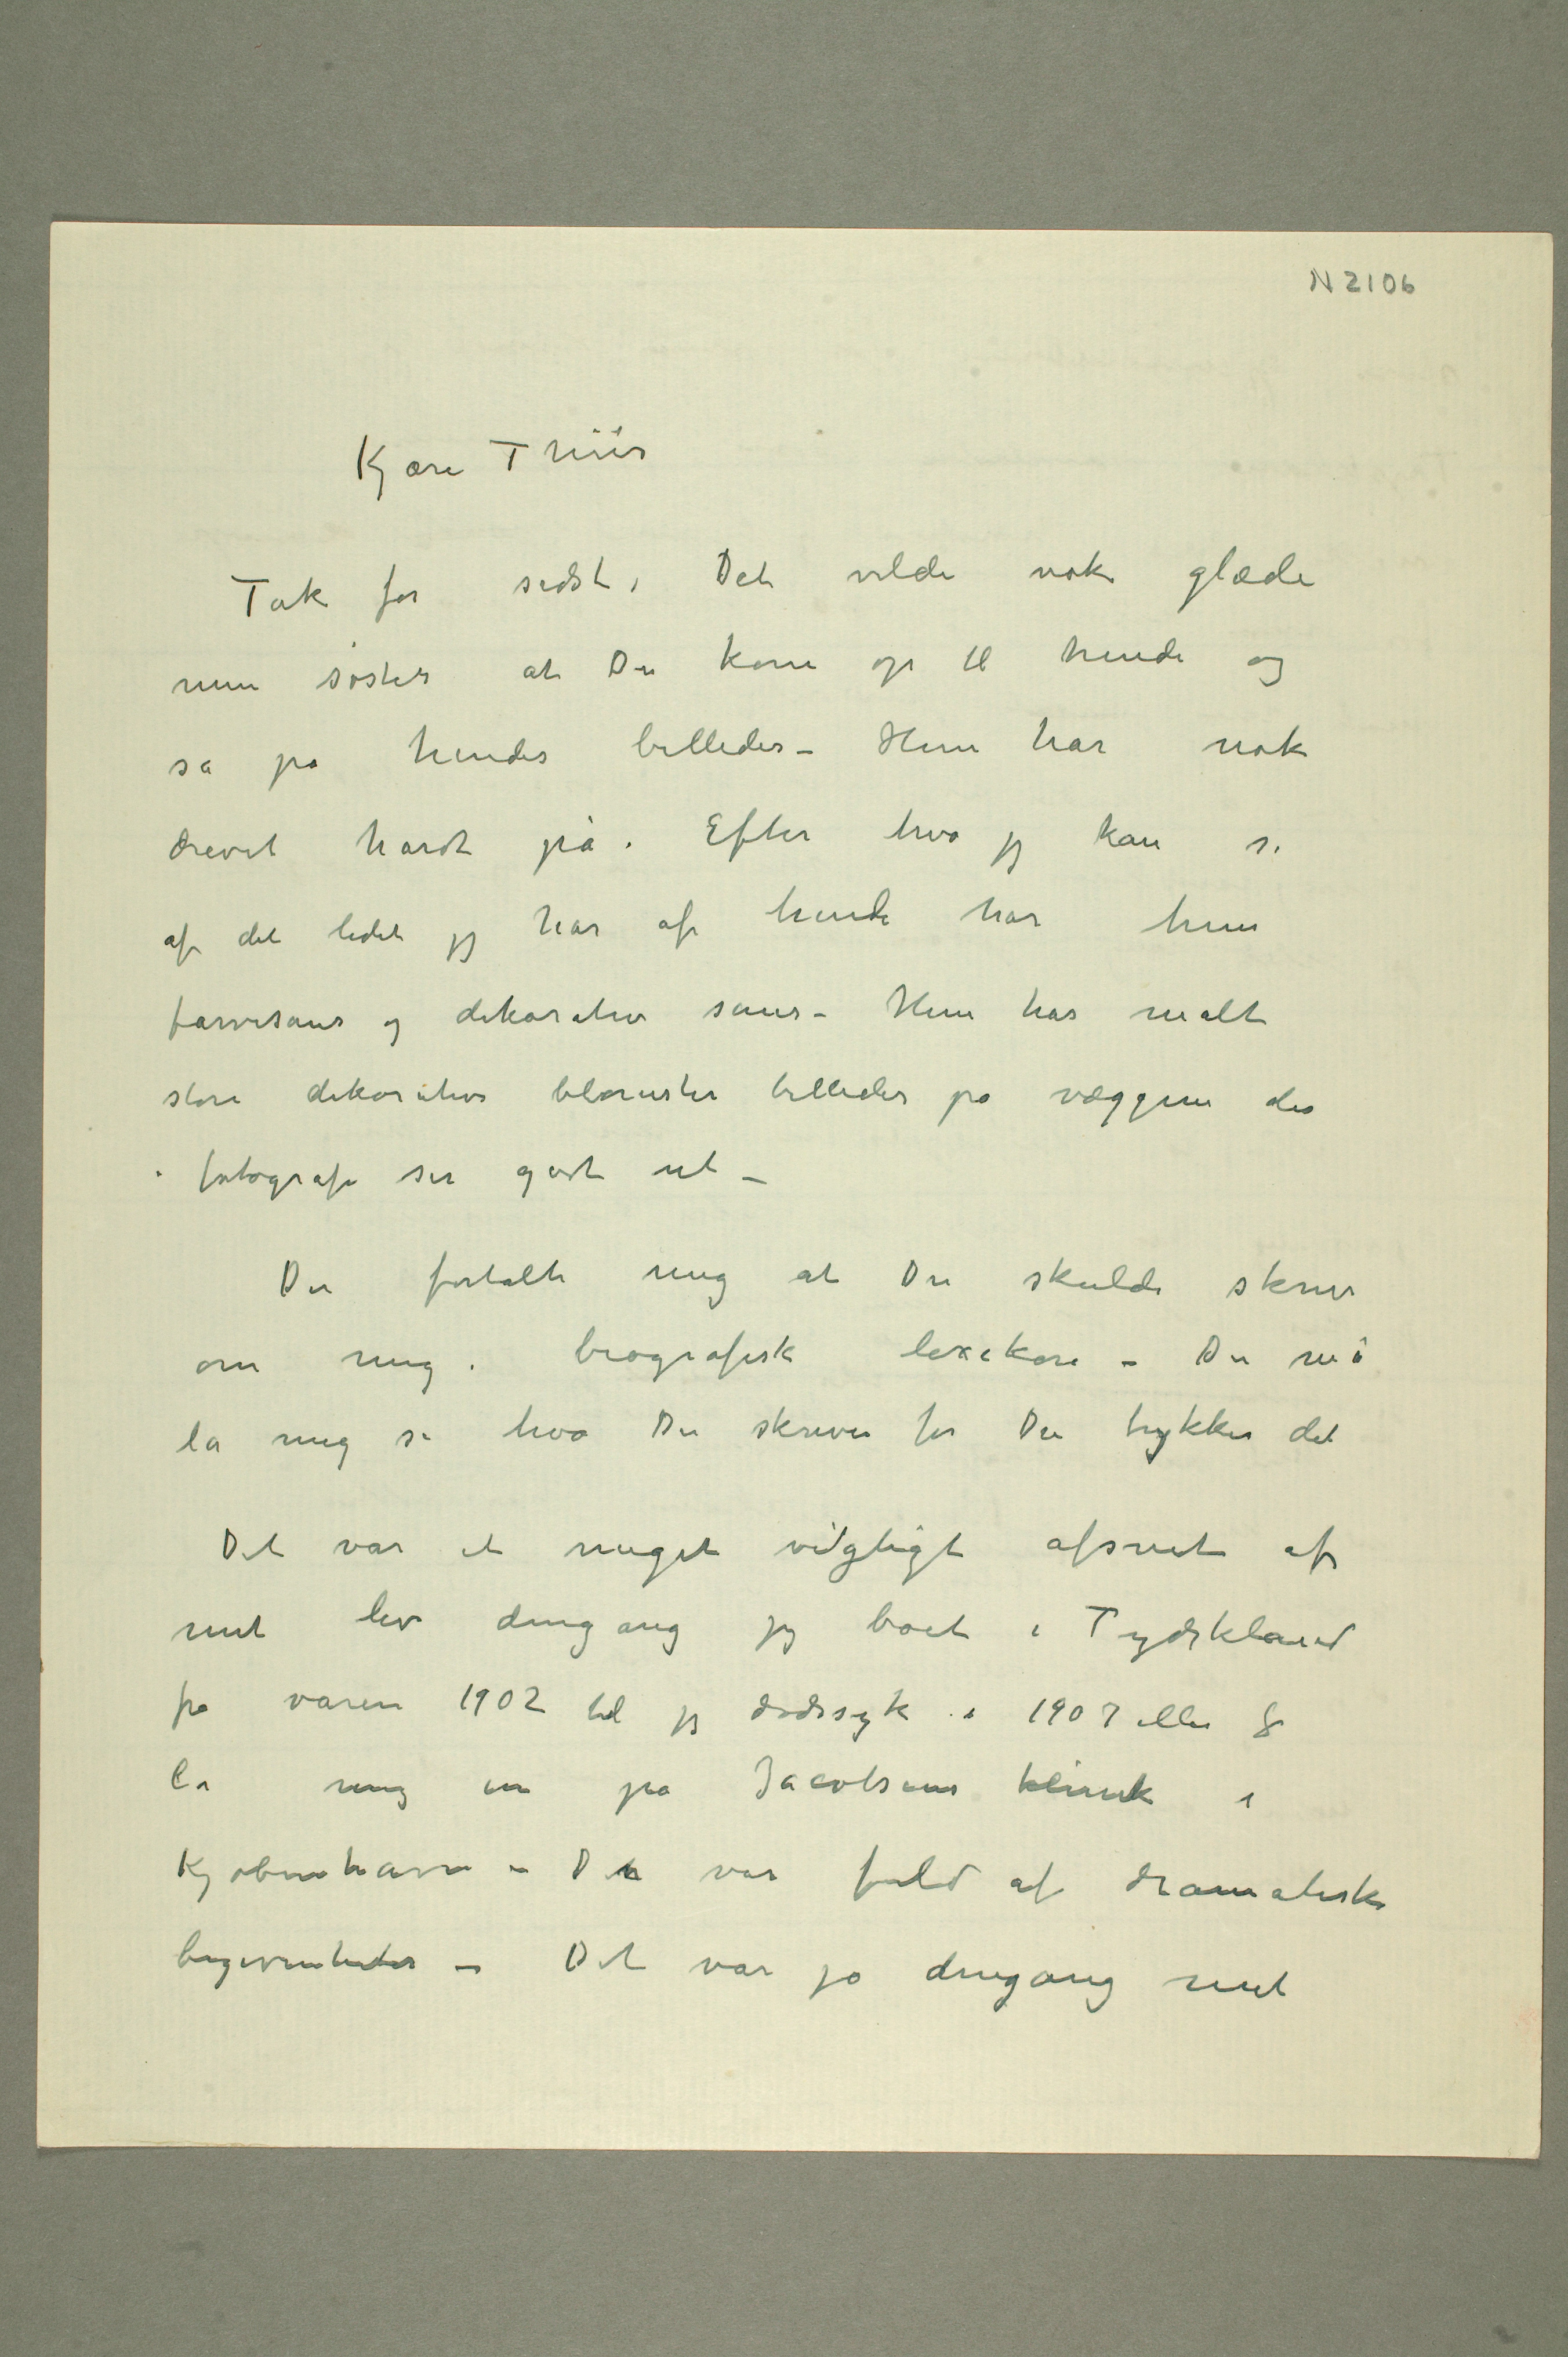 N 2106
Kjære Thiis
Tak for sidst, Det vilde nok glæde
min søster at Du kom op til hende og
så på hendes billeder – Hun har nok
drevet hardt på. Efter hva jeg kan se
af det lidet jeg har af hende har hun
farvesans og dekorativ sans – Hun har malt
store dekorative blomster billeder på væggene der
i fotografi ser godt ut –
Du fortalte mig at Du skulde skrive
om mig i biografisk lexikon – Du må
la mig se hva Du skriver før Du trykker det
Det var et meget vigtigt afsnit af
mit liv dengang jeg boet i Tydskland
fra våren 1902 til jeg dødssyk i 1907 eller 8
la mig in på Jacobsens klinik i
Kjøbenhavn – Det var fuld af dramatiske
begivenheder – Det var jo dengang mit